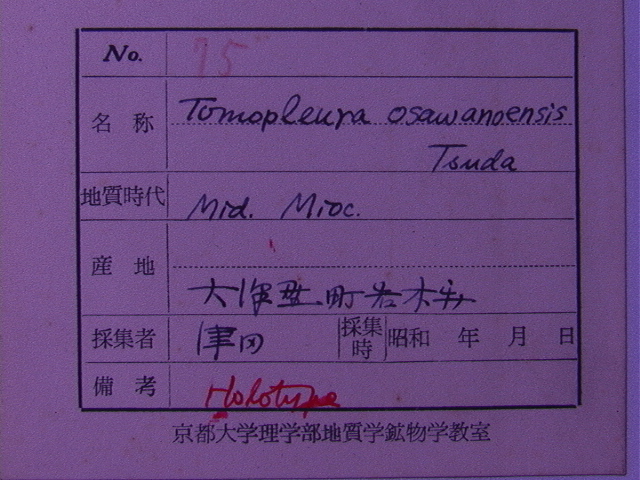 No. 75
名称 Tomopleura osawanoensis
Tsuda
地質時代 Mid. Mioc.
産地
大沢野町岩木新
採集者 津田 採集時 昭和 年 月 日
備考 Holotype
京都大学理学部地質学鉱物学教室